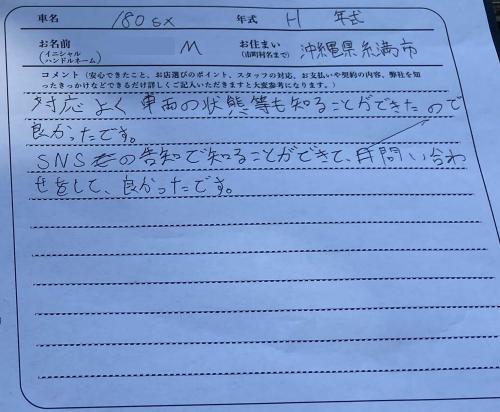 車名 180sx 年式 H 年式
お名前 (イニシャル ハンドルネーム) M お住まい (市町村名まで) 沖縄県糸満市
コメント (安心できたこと、お店選びのポイント、スタッフの対応、お支払いや契約の内容、弊社を知
ったきっかけなどできるだけ詳しくご記入いただきますと大変参考になります。)
対応よく車両の状態等も知ることができたので
良かったです。
SNSの告知で知ることができて、問い合わ
せをして、良かったです。